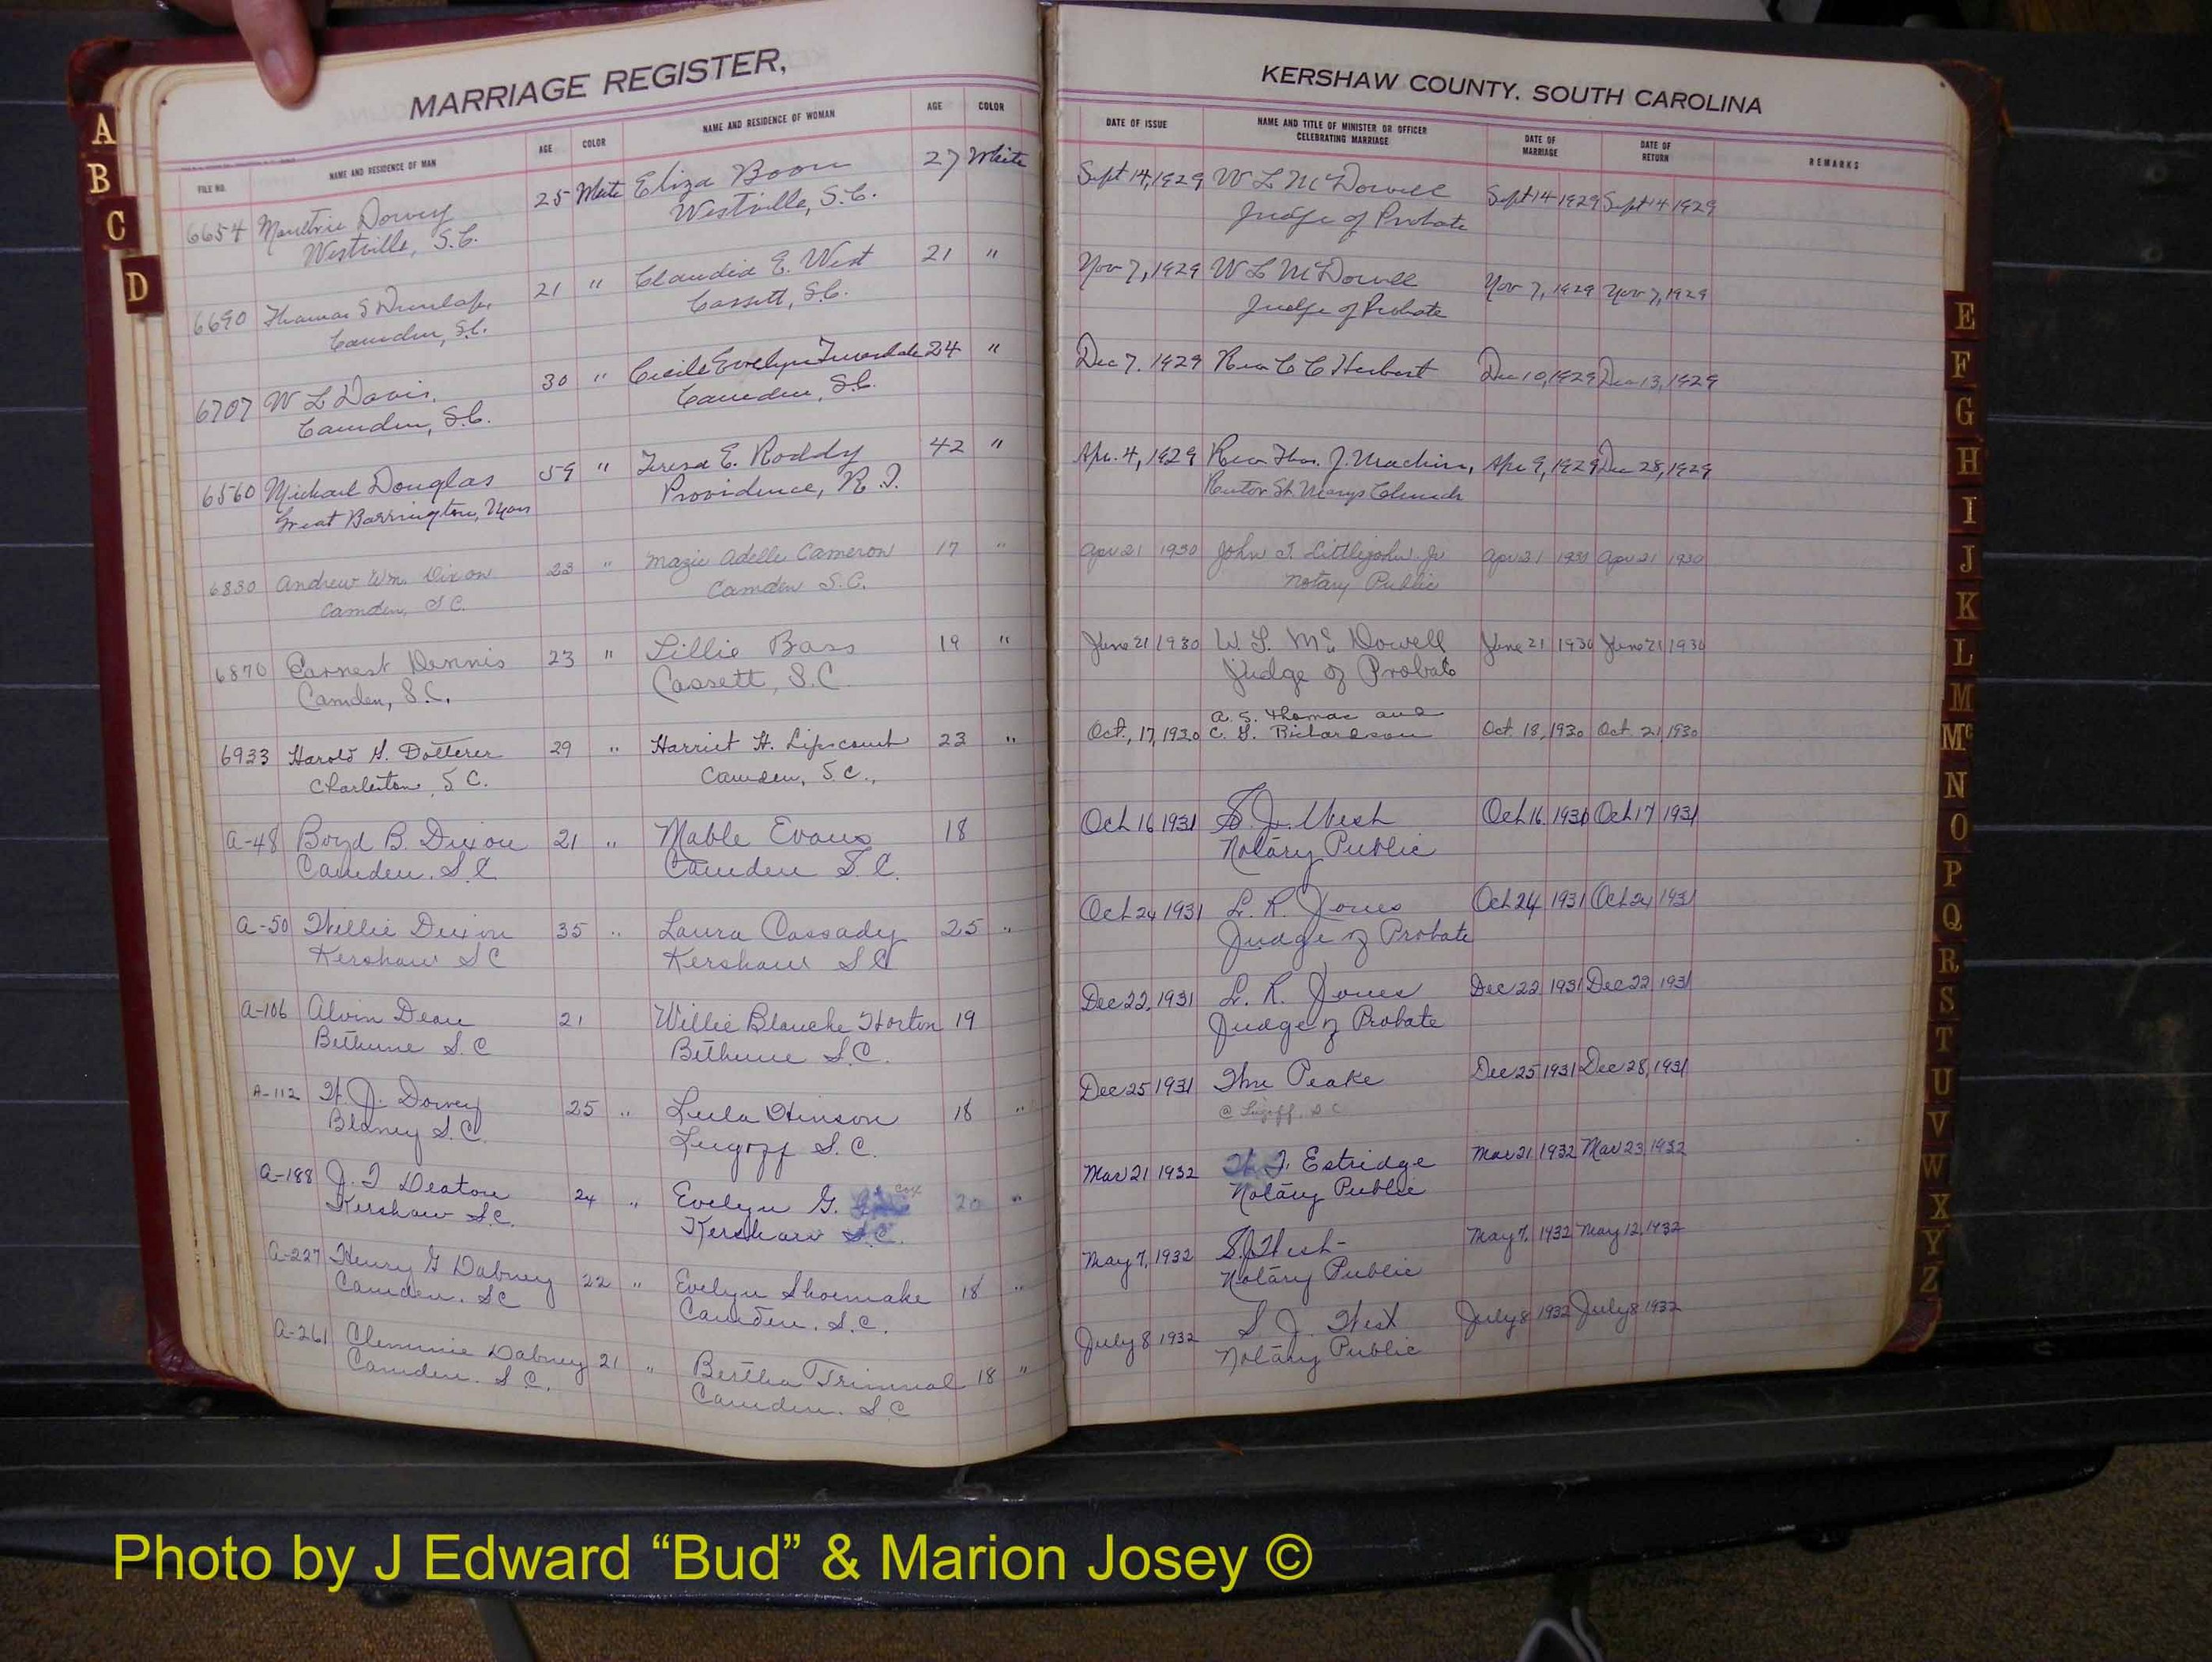 MARRIAGE REGISTER,
FILE NO. NAME AND RESIDENCE OF MAN AGE COLOR NAME AND RESIDENCE OF WOMAN AGE COLOR
6654 Moultrie Dowey 25 White Eliza Boon 27 White
Westville, S.C. Westville, S.C.
6690 Thomas S Dunlap, 21 " Claudia E. West 21 "
Camden, S.C. Cassett, S.C.
6707 W L Davis, 30 " Cecile Evelyn 24 "
Camden, S.C. Camden, S.C.
6560 Michael Douglas 59 " Teresa E. Roddy 42 "
Great Barrington, Mass Providence, R.I.
6830 Andrew Wm. Dixon 23 " Mazie Adelle Cameron 17 "
Camden, S.C. Camden S.C.
6870 Earnest Dennis 23 " Lillie Bass 19 "
Camden, S.C. Cassett, S.C
6933 Harold G. Dotterer 29 " Harriet H. Lipscomb 23 "
Charleston, S C. Camden, S.C.,
A-48 Boyd B. Dixon 21 " Mable Evans 18
Camden. S.C Camden S.C.
A-50 Willie Dixon 35 " Laura Cassady 25 "
Kershaw S C Kershaw S C
A-106 Alvin Dean 21 Willie Blanche Horton 19
Bethune S.C Bethune S.C.
A-112 W. J. Dowey 25 " Leila Hinson 18 "
Blaney S.C. Lugoff S.C.
A-188 J. T Deaton 24 " Evelyn G. Cox 20 "
Kershaw S.C. Kershaw S.C.
A-227 Henry G Dabney 22 " Evelyn Shoemake 18 "
Camden. SC Camden. S.C.
A-261 Clemmie Dabney 21 " Bertha Trimnal 18 "
Camden. S C. Camden. S C
KERSHAW COUNTY. SOUTH CAROLINA
DATE OF ISSUE NAME AND TITLE OF MINISTER OR OFFICER CELEBRATING MARRIAGE DATE OF MARRIAGE DATE OF RETURN REMARKS
Sept 14, 1929 W L McDowell Sept 14 1929 Sept 14 1929
Judge of Probate
Nov 7, 1929 W L McDowell Nov 7, 1929 Nov 7, 1929
Judge of Probate
Dec 7. 1929 Rev C C Herbert Dec 10, 1929 Dec 13, 1929
Apr. 4, 1929 Rev Thos. J. Mackin, Apr 9, 1929 Dec 28, 1929
Rector St Marys Church
Apr 21 1930 John T. Littlejohn Jr Apr 21 1930 Apr 21 1930
Notary Public
June 21 1930 W. L. McDowell June 21 1930 June 21 1930
Judge of Probate
Oct., 17, 1930 A. S. Thomas and Oct. 18, 1930 Oct. 21, 1930
C. G. Richardson
Oct 16 1931 S. J. West Oct 16. 1931 Oct 17 1931
Notary Public
Oct 24 1931 L. R. Jones Oct 24 1931 Oct 24 1931
Judge of Probate
Dec 22, 1931 L. R. Jones Dec 22 1931 Dec 22 1931
Judge of Probate
Dec 25 1931 Thu Peake Dec 25 1931 Dec 28, 1931
@ Lugoff, S C
Mar 21 1932 T. Estridge Mar 21 1932 Mar 23 1932
Notary Public
May 7, 1932 S. J. West- May 7. 1932 May 12, 1932
Notary Public
July 8 1932 S J. West July 8 1932 July 8 1932
Notary Public
A
B
C
D
E
F
G
H
I
J
K
L
M
Mc
N
O
P
Q
R
S
T
U
V
W
X
Y
Z
Photo by J Edward “Bud” & Marion Josey ©